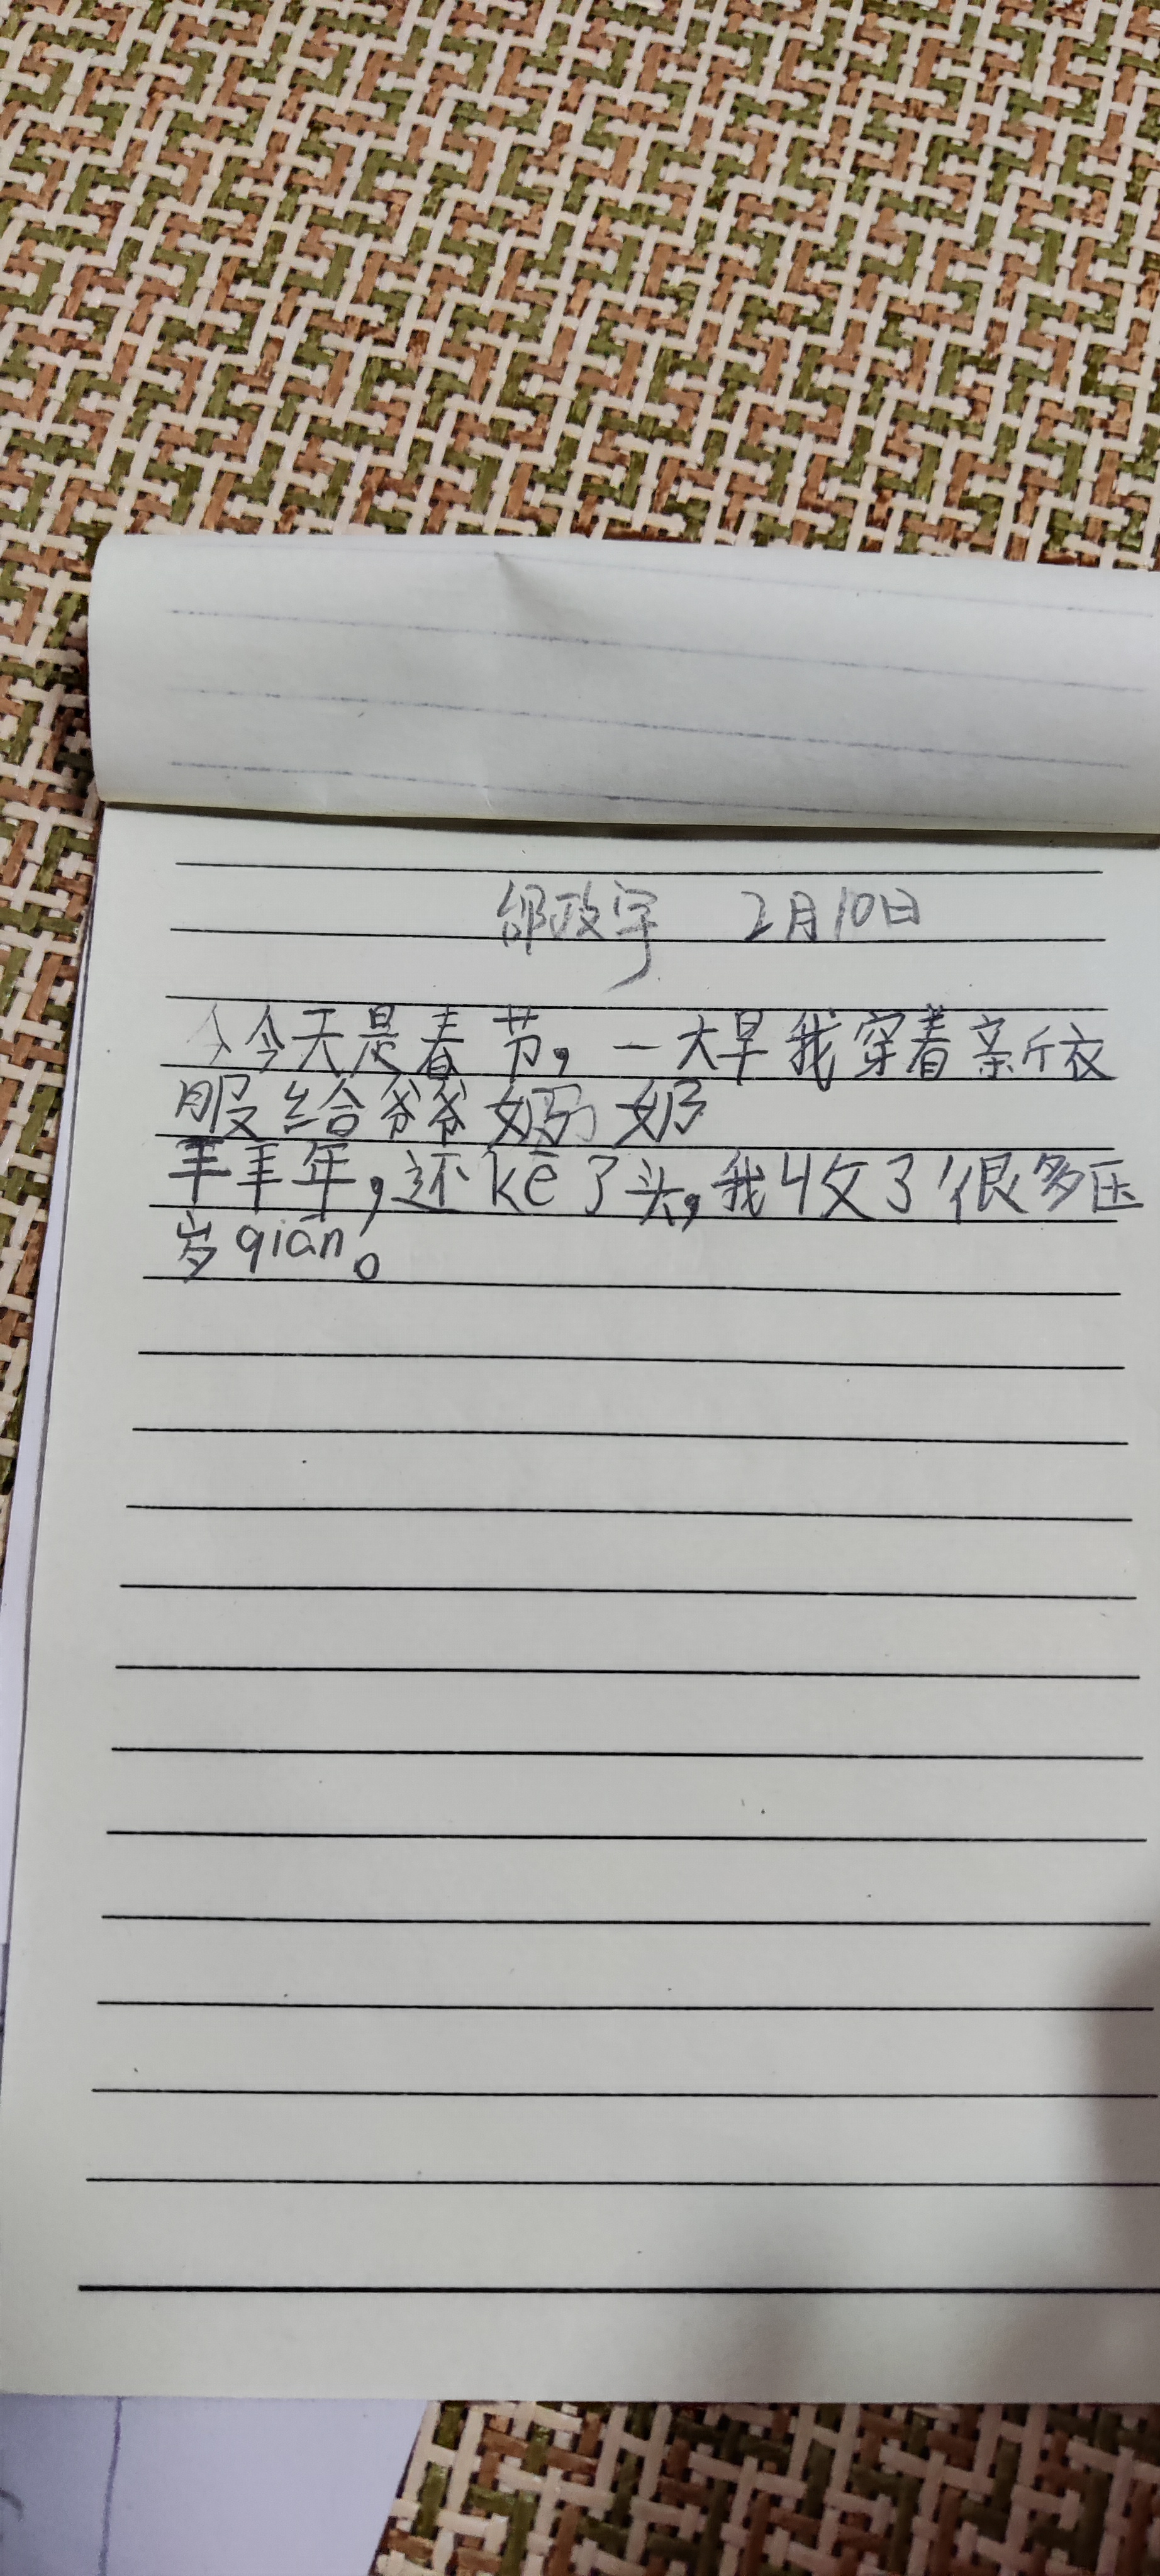 邰政宇 2月10日
今今天是春节，一大早我穿着新衣
服给爷爷奶奶
丰丰年，还kē了头，我收了很多压
岁qián。